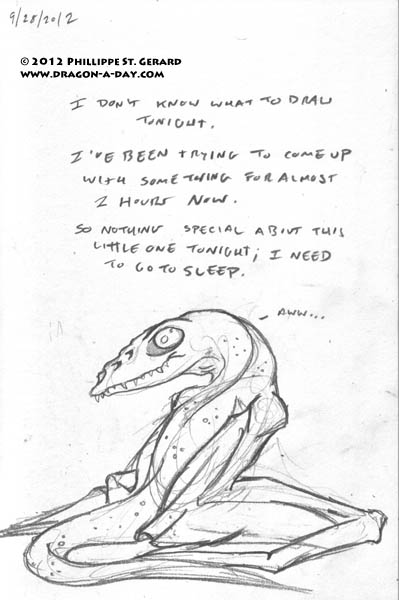 9/28/2012
© 2012 Phillippe St. Gerard
www.dragon-a-day.com
I DON'T KNOW WHAT TO DRAW
TONIGHT.
I'VE BEEN TRYING TO COME UP
WITH SOMETHING FOR ALMOST
2 HOURS NOW.
SO NOTHING SPECIAL ABOUT THIS
LITTLE ONE TONIGHT; I NEED
TO GO TO SLEEP.
AWW...